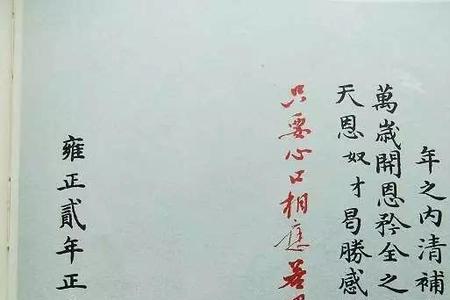 年之內清補
萬歲開恩矜全之
天恩奴才曷勝感
只要心口相應若
雍正貳年正